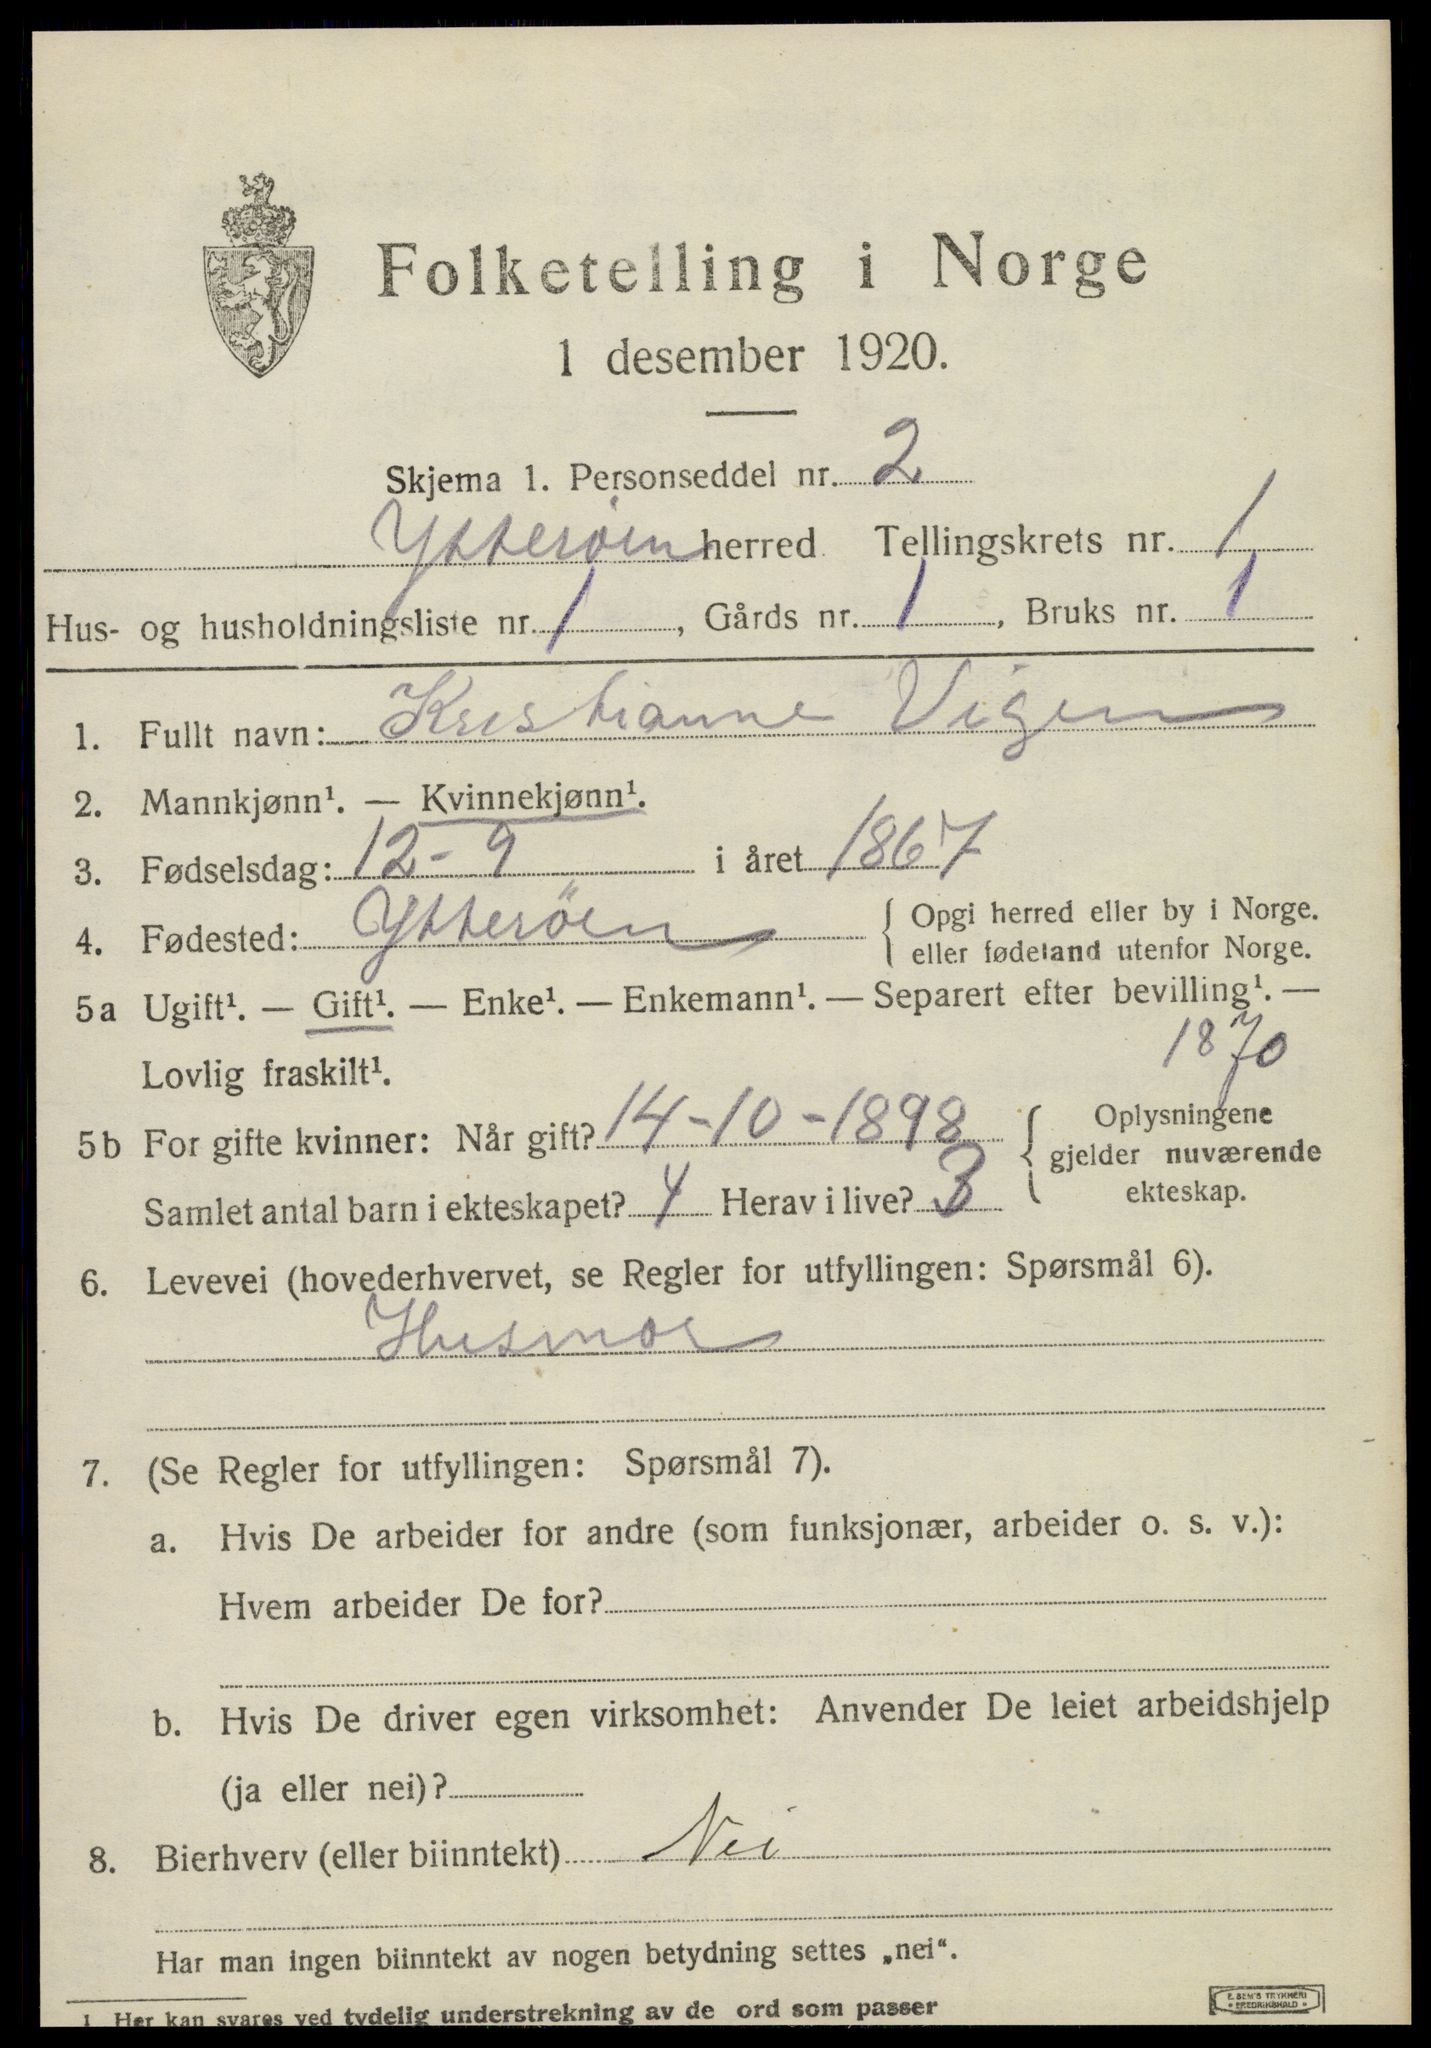 Folketelling i Norge
1 desember 1920.
Skjema 1. Personseddel nr. 2
Ytterøen herred Tellingskrets nr. 1
Hus- og husholdningsliste nr. 1, Gårds nr. 1, Bruks nr. 1
1. Fullt navn: Kristianne Vigen
2. Mannkjønn¹. — Kvinnekjønn¹.
3. Fødselsdag: 12-9 i året 1867
4. Fødested: Ytterøen { Opgi herred eller by i Norge.
eller fødeland utenfor Norge.
5a Ugift¹. — Gift¹. — Enke¹. — Enkemann¹. — Separert efter bevilling¹. —
Lovlig fraskilt¹. 1870
5b For gifte kvinner: Når gift? 14-10-1898 { Oplysningene
gjelder nuværende
ekteskap.
Samlet antal barn i ekteskapet? 4 Herav i live? 3
6. Levevei (hovederhvervet, se Regler for utfyllingen: Spørsmål 6).
Husmor
7. (Se Regler for utfyllingen: Spørsmål 7).
a. Hvis De arbeider for andre (som funksjonær, arbeider o. s. v.):
Hvem arbeider De for?
b. Hvis De driver egen virksomhet: Anvender De leiet arbeidshjelp
(ja eller nei)?
8. Bierhverv (eller biinntekt) Nei
Har man ingen biinntekt av nogen betydning settes „nei“.
1 Her kan svares ved tydelig understrekning av de ord som passer
E. SEM'S TRYKKERI
* FREDRIKSHALD *